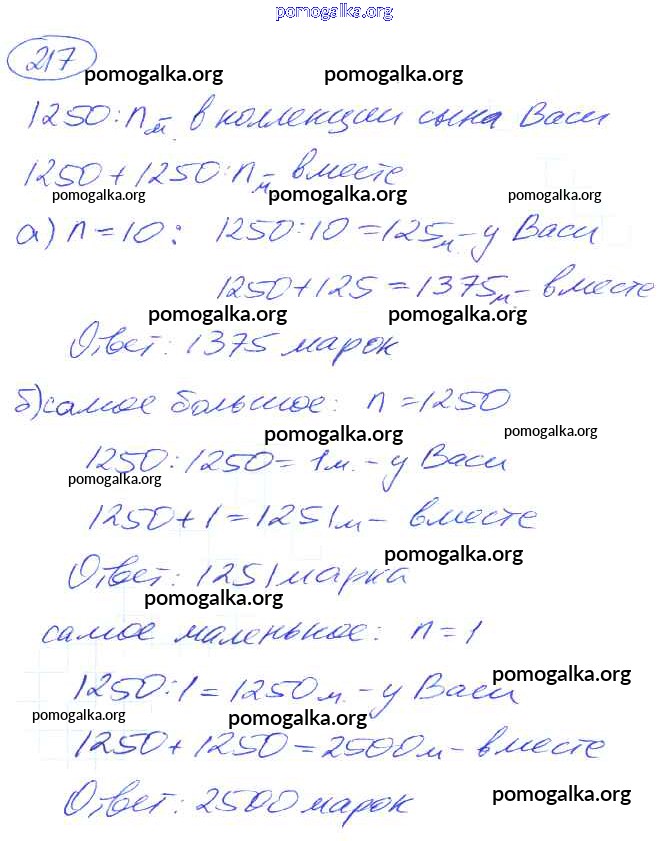 pomogalka.org
217
pomogalka.org pomogalka.org
1250:n м. в коллекции сына Васи
1250+1250:n м - вместе
pomogalka.org pomogalka.org pomogalka.org
а) n=10: 1250:10=125 м - у Васи
1250+125=1375 м - вместе
pomogalka.org pomogalka.org
Ответ: 1375 марок
б) самое большое: n=1250
pomogalka.org pomogalka.org
1250:1250=1м. - у Васи
pomogalka.org
1250+1=1251м - вместе
pomogalka.org
Ответ: 1251 марка
pomogalka.org
самое маленькое: n=1
pomogalka.org
1250:1=1250м. - у Васи
pomogalka.org pomogalka.org
1250+1250=2500м - вместе
Ответ: 2500 марок
pomogalka.org